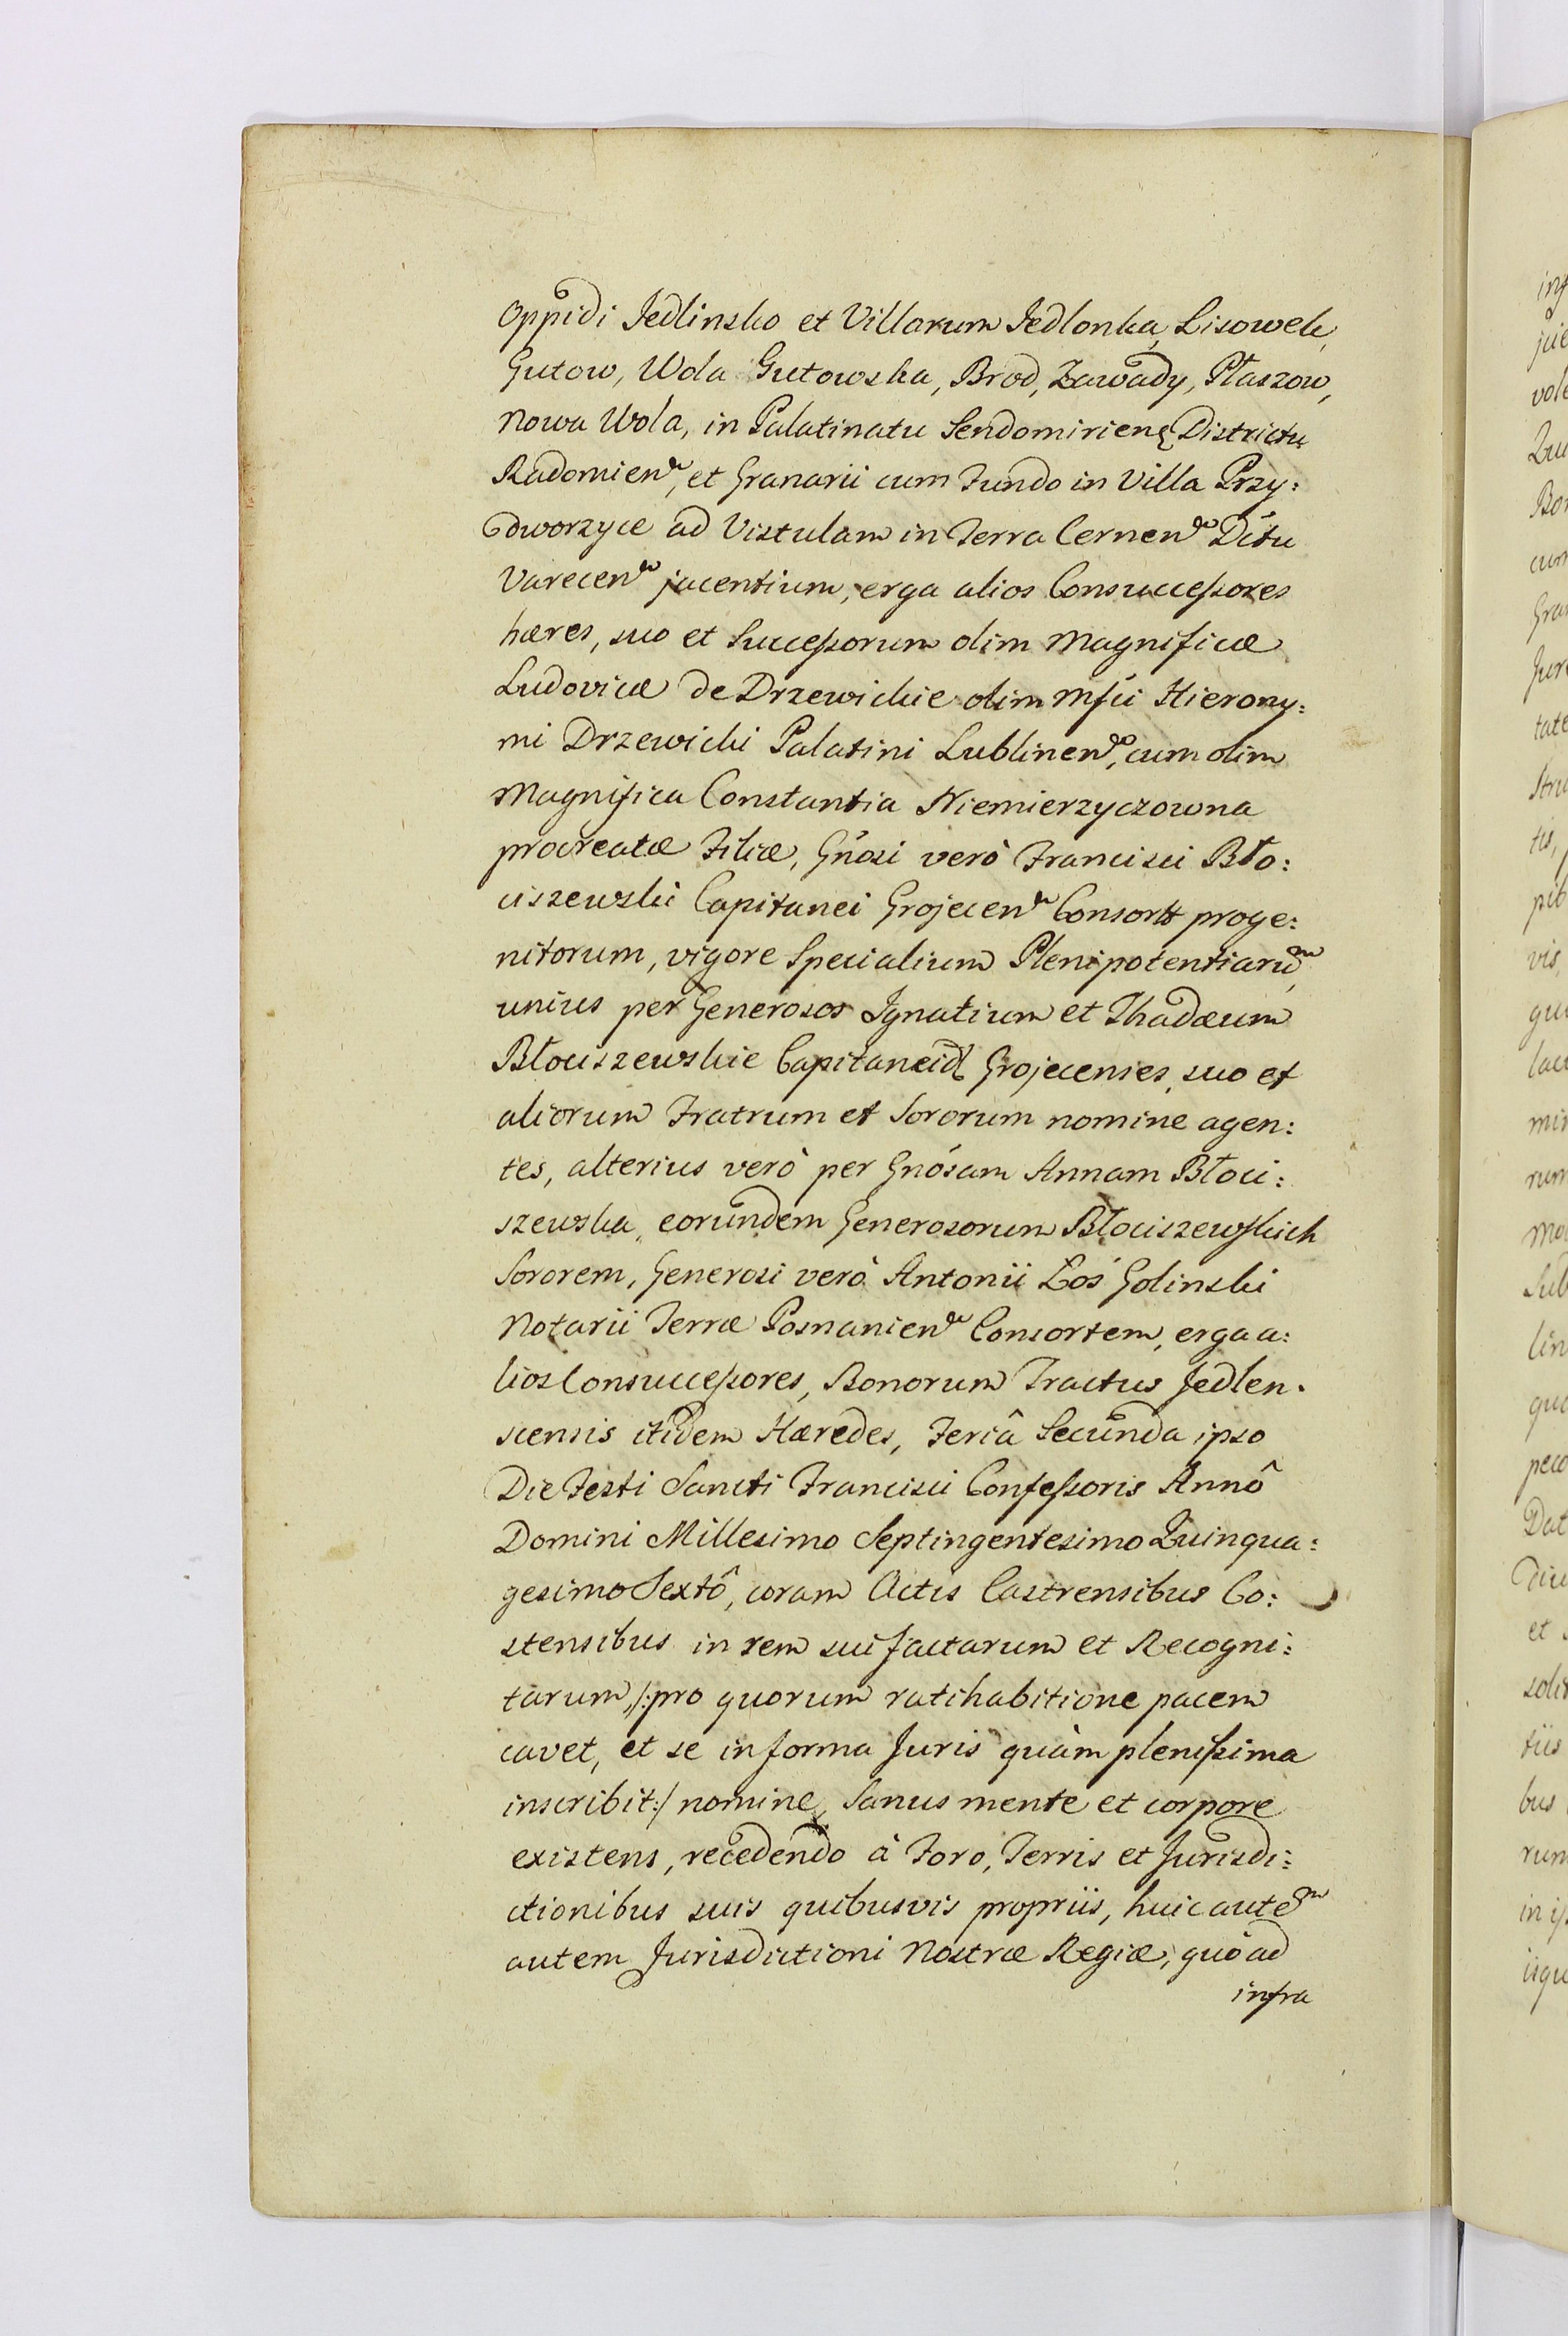 Oppidi Jedlinsko et Villarum Jedlonka, Lisowek,
Gutow, Wola Gutowska, Brod, Zawady, Płaszow,
Nowa Wola, in Palatinatu Sendomirien Districtu
Radomien, et Granarii cum Fundo in Villa Przy:
dworzyce ad Vistulam in Terra Cernen Dítu
Varecen jacentium, erga alios Consuccessores
hæres, suo et Successorum olim Magnificæ
Ludovicæ de Drzewickie olim Mfci Hierony:
mi Drzewicki Palatini Lublinen, cum olim
Magnifica Constantia Niemierzyczowna
procreatæ Filiæ, Gnosi verò Francisci Bło:
ciszewski Capitanei Grojecen Consortt proge:
nitorum, vigore Specialium Plenipotentiarum,
unius per Generosos Ignatium et Thadæum
Błociszewskie Capitaneid Grojecenses, suo et
aliorum Fratrum et Sororum nomine agen:
tes, alterius verò per Gnósam Annam Błoci:
szewska, eorundem Generosorum Błociszewskich
Sororem, Generosi verò Antonii Łoś Golinski
Notarii Terræ Posnanien Consortem, erga a:
lios Consuccessores, Bonorum Tractus Jedlen.
scensis itidem Hæredes, Feriâ Secunda ipso
Die Festi Sancti Francisci Confessoris Annô
Domini Millesimo Septingentesimo Quinqua:
gesimo Sextô, coram Actis Castrensibus Co:
stensibus in rem sui factarum et Recogni:
tarum, /:pro quorum ratihabitione pacem
cavet, et se in forma Juris quàm plenissima
inscribit:/ nomine, Sanus mente et corpore
existens, recedendo à Foro, Terris et Jurisdi:
ctionibus suis quibusvis propriis, huic autem
autem Jurisdictioni Nostræ Regiæ, quò ad
infra